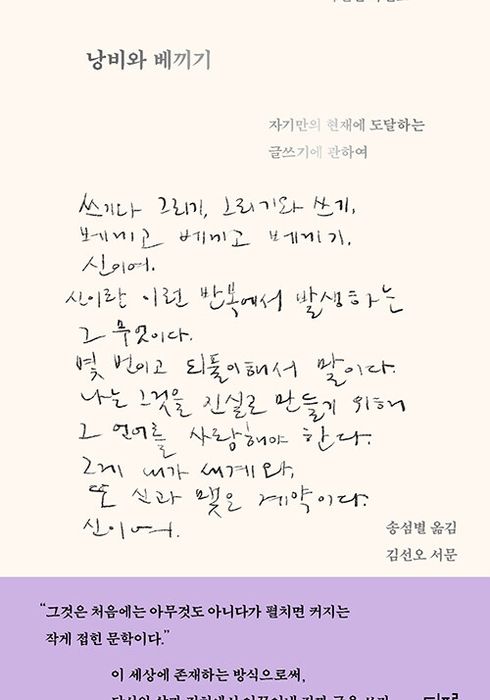 낭비와 베끼기
자기만의 현재에 도달하는
글쓰기에 관하여
쓰기다 그리기, 그리기와 쓰기,
베끼고 베끼고 베끼기.
신이여.
신이란 이런 반복에서 발생하는
그 무엇이다.
몇 번이고 되풀이해서 말이다.
나는 그것을 진실로 만들기 위해
그 언어를 사랑해야 한다.
그게 내가 세계와,
또 신과 맺은 계약이다.
신이여.
송섬별 옮김
김선오 서문
“그것은 처음에는 아무것도 아니다가 펼치면 커지는
작게 접힌 문학이다.”
이 세상에 존재하는 방식으로써,